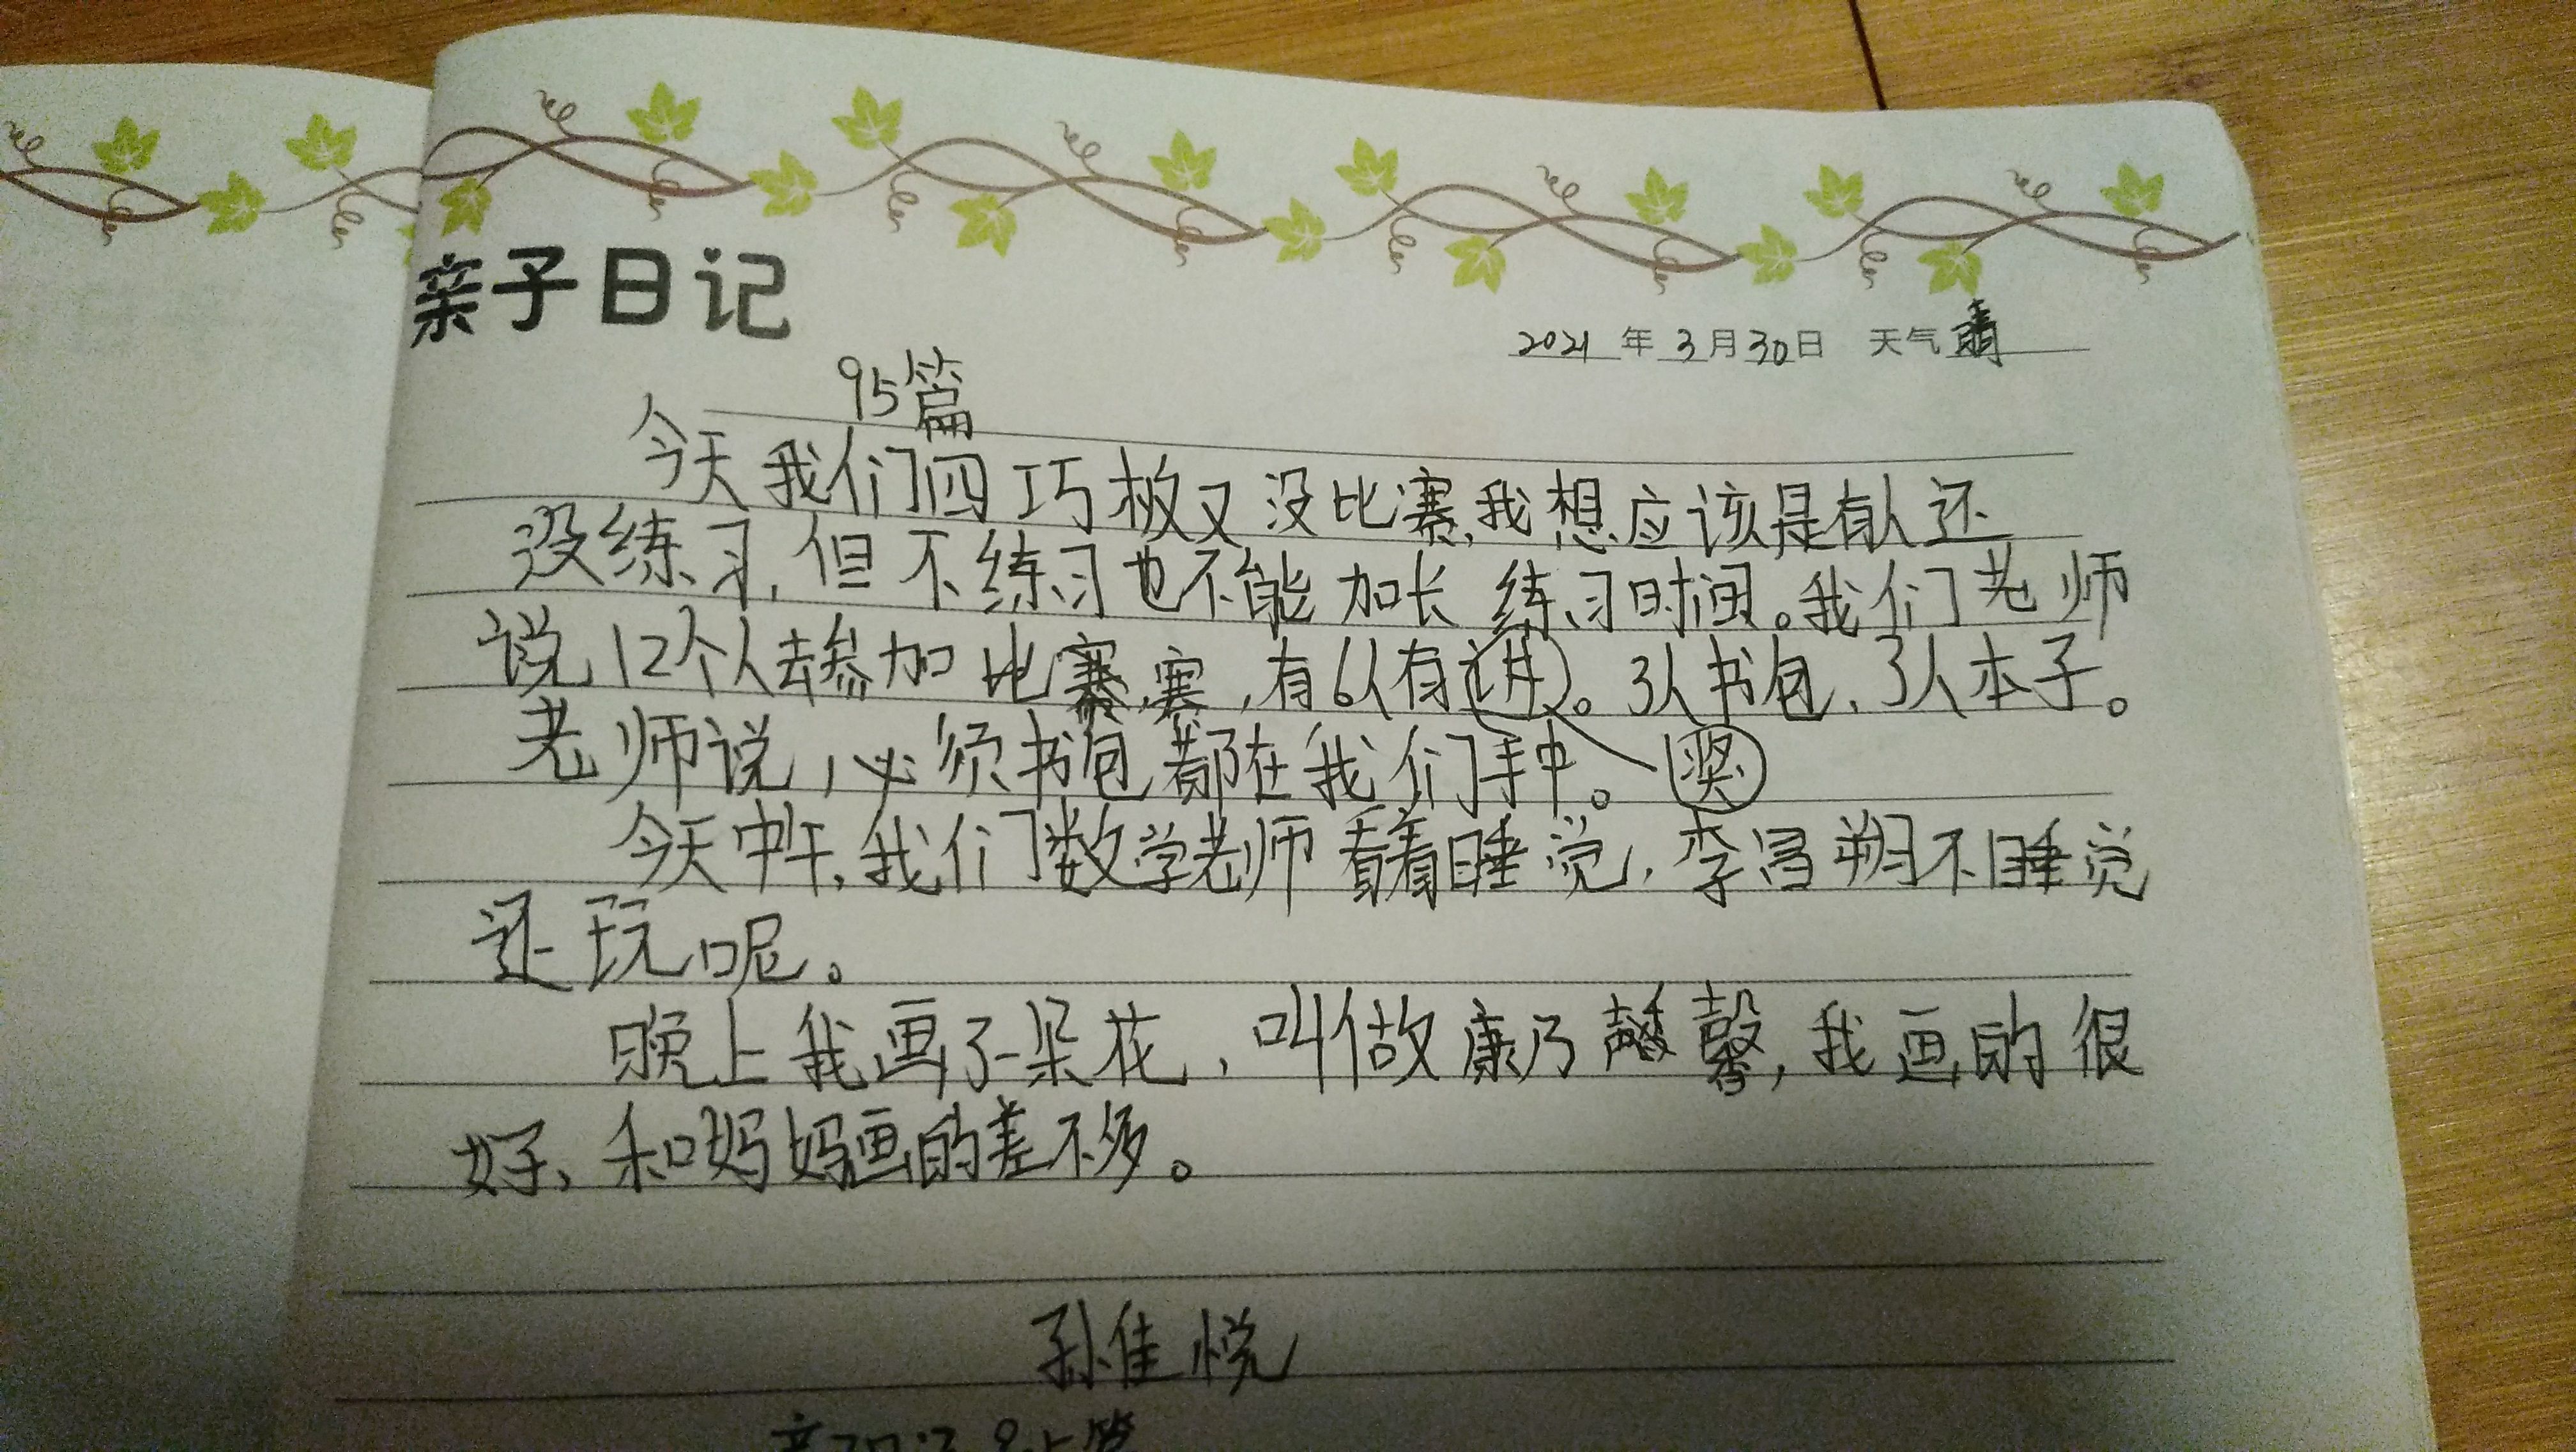 亲子日记
2021 年 3 月 30 日 天气 晴
95篇
今天我们四巧板又没比赛,我想应该是有人还
没练习,但不练习也不能加长练习时间。我们老师
说12个人去参加比赛赛,有6人有进。3人书包,3人本子。
老师说,必须书包都在我们手中。 奖
今天中午,我们数学老师看着睡觉,李昌朔不睡觉
还玩呢。
晚上我画了一朵花,叫做康乃馨,我画的很
好、和妈妈画的差不多。
孙佳悦